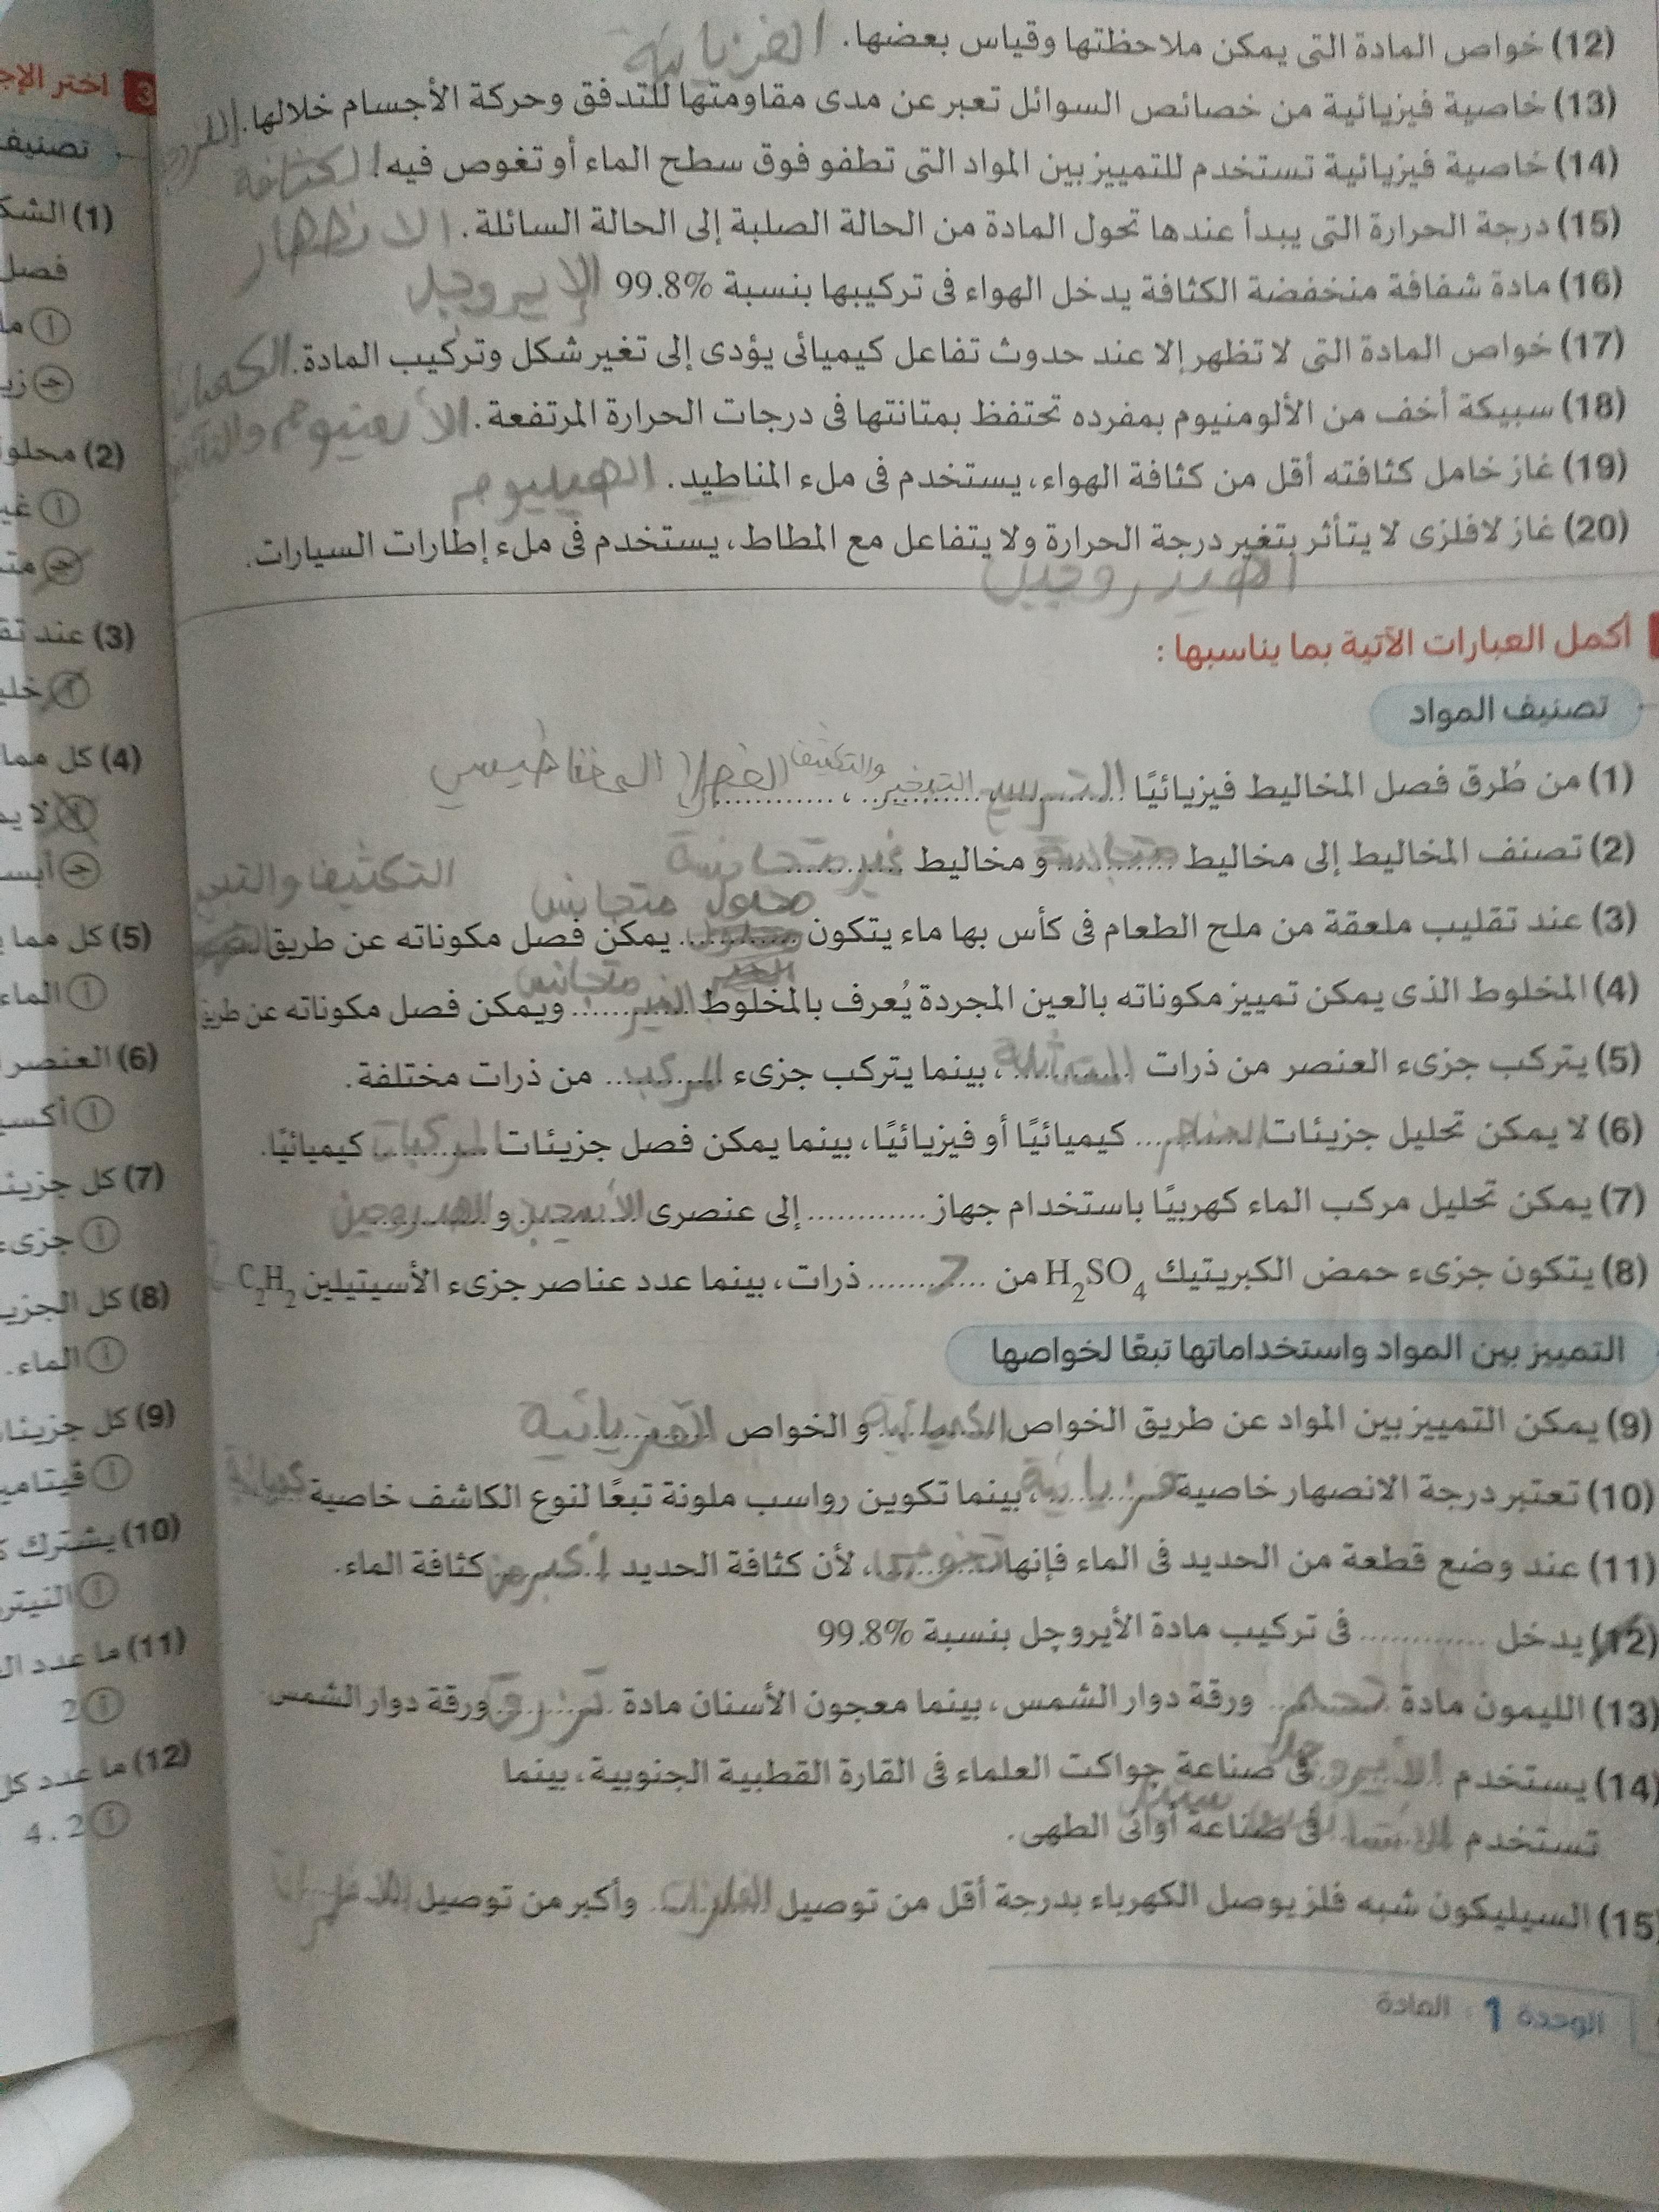 (12) خواص المادة التى يمكن ملاحظتها وقياس بعضها. الفزيائية
(13) خاصية فيزيائية من خصائص السوائل تعبر عن مدى مقاومتها للتدفق وحركة الأجسام خلالها.
(14) خاصية فيزيائية تستخدم للتمييز بين المواد التى تطفو فوق سطح الماء أو تغوص فيه. الكثافة
(15) درجة الحرارة التى يبدأ عندها تحول المادة من الحالة الصلبة إلى الحالة السائلة. الانصهار
(16) مادة شفافة منخفضة الكثافة يدخل الهواء فى تركيبها بنسبة 99.8% الإيروجل
(17) خواص المادة التى لا تظهر إلا عند حدوث تفاعل كيميائى يؤدى إلى تغير شكل وتركيب المادة.
(18) سبيكة أخف من الألومنيوم بمفرده تحتفظ بمتانتها فى درجات الحرارة المرتفعة.
(19) غاز خامل كثافته أقل من كثافة الهواء، يستخدم فى ملء المناطيد. الهيليوم
(20) غاز لافلزى لا يتأثر بتغير درجة الحرارة ولا يتفاعل مع المطاط، يستخدم فى ملء إطارات السيارات.
الهيدروجين
أكمل العبارات الآتية بما يناسبها :
تصنيف المواد
(1) من طُرق فصل المخاليط فيزيائيًا الترسيح، التبخير والتكثيف، الفصل المغناطيسي
(2) تصنف المخاليط إلى مخاليط متجانسة و مخاليط غير متجانسة
محلول متجانس التكثيف
(3) عند تقليب ملعقة من ملح الطعام فى كأس بها ماء يتكون ............ يمكن فصل مكوناته عن طريق
(4) المخلوط الذى يمكن تمييز مكوناته بالعين المجردة يُعرف بالمخلوط الغير متجانس ويمكن فصل مكوناته عن طريق
(5) يتركب جزىء العنصر من ذرات المتماثلة، بينما يتركب جزىء المركب من ذرات مختلفة.
(6) لا يمكن تحليل جزيئات العناصر كيميائيًا أو فيزيائيًا، بينما يمكن فصل جزيئات المركبات كيميائيًا.
(7) يمكن تحليل مركب الماء كهربيًا باستخدام جهاز ............ إلى عنصرى الأكسجين و الهدروجين
(8) يتكون جزىء حمض الكبريتيك H₂SO₄ من 7 ذرات، بينما عدد عناصر جزىء الأسيتيلين C₂H₂
التمييز بين المواد واستخداماتها تبعًا لخواصها
(9) يمكن التمييز بين المواد عن طريق الخواص الكيميائية و الخواص الفزيائية
(10) تعتبر درجة الانصهار خاصية فزيائية، بينما تكوين رواسب ملونة تبعًا لنوع الكاشف خاصية
(11) عند وضع قطعة من الحديد فى الماء فإنها تغوص، لأن كثافة الحديد أكبر من كثافة الماء.
(12) يدخل ............ فى تركيب مادة الأيروچل بنسبة 99.8%
(13) الليمون مادة تحمر ورقة دوار الشمس، بينما معجون الأسنان مادة تزرق ورقة دوار الشمس.
(14) يستخدم الأيروجل فى صناعة جواكت العلماء فى القارة القطبية الجنوبية، بينما
تستخدم ............ فى صناعة أوانى الطهى.
(15) السيليكون شبه فلز يوصل الكهرباء بدرجة أقل من توصيل الفلزات وأكبر من توصيل
الوحدة 1 : المادة
3 اختر الإج
تصنيف
(1) الشك
فصل
(2) محلو
(3) عند تق
(4) كل مما
(5) كل مما
أ الماء
(6) العنصر
أ أكسي
(7) كل جزيئ
أ جزىء
(8) كل الجزي
أ الماء.
(9) كل جزيئا
أ ڤيتامي
(10) يشترك
أ النيتر
(11) ما عدد ال
أ 2
(12) ما عدد كل
أ 2 ، 4